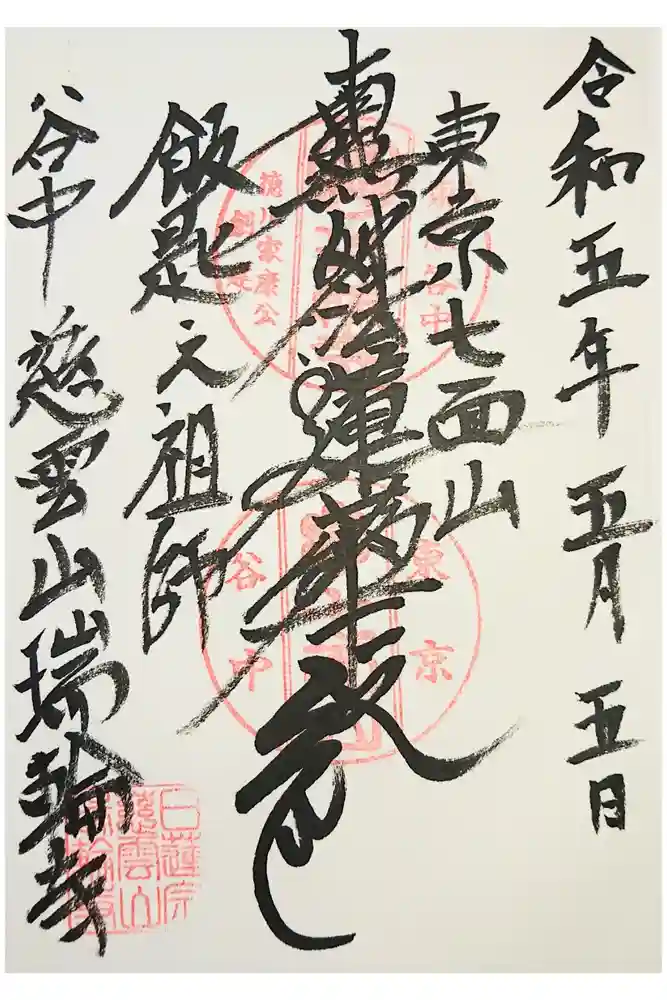 令和五年 五月 五日
東京七面山
南無妙法蓮華経
飯匙之祖師
谷中 慈雲山瑞輪寺
谷中
徳川家康公
東京
谷中
日蓮宗
慈雲山
瑞輪寺